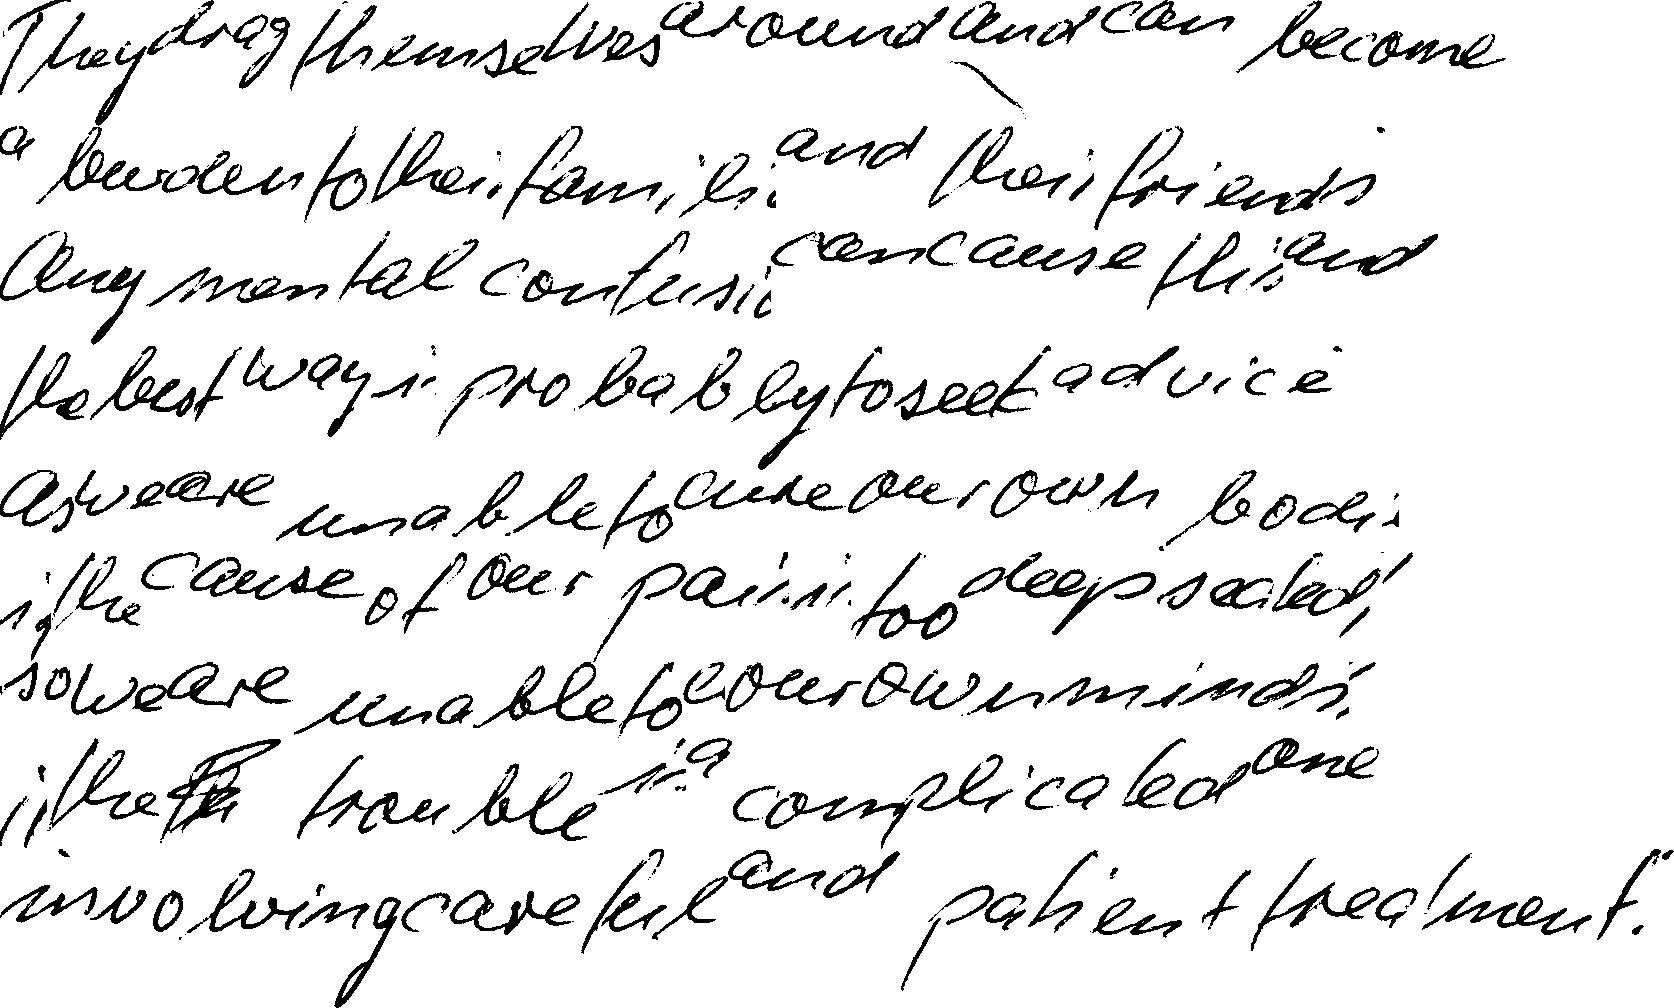 They drag themselves around and can become
a burden to their famili. and their friends
Any mental confusi. can cause this and
the best way is probably to seek advice
As we are unable to cure our own bodi.
if the cause of our pain is too deep seated,
so we are unable to our own minds,
if the trouble is a complicated one
involving careful and patient treatment."